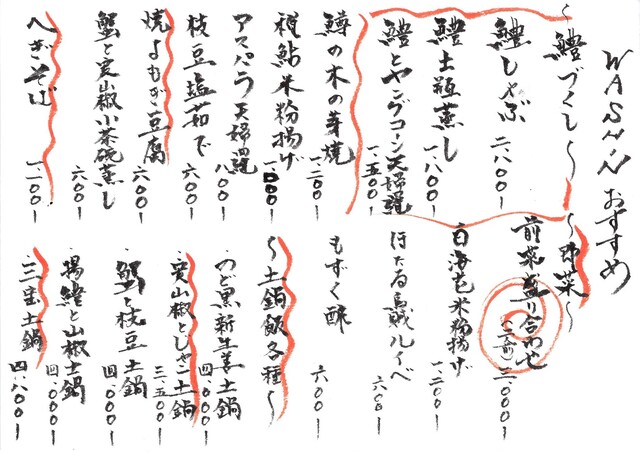 WASHINおすすめ
〜鱧づくし〜
鱧しゃぶ 二.八〇〇ー
鱧土瓶蒸し 一.八〇〇ー
鱧とヤングコーン天婦羅 一.五〇〇ー
鱒の木の芽焼 一.二〇〇ー
稚鮎米粉揚げ 一.〇〇〇ー
アスパラ天婦羅 八〇〇ー
枝豆塩茹で 六〇〇ー
焼よもぎ豆腐 六〇〇ー
蟹と実山椒小茶碗蒸し 六〇〇ー
へぎそば 一.一〇〇ー
〜野菜〜
前菜盛り合わせ(二名前) 三.〇〇〇ー
白海老米粉揚げ 一.二〇〇ー
ほたる烏賊ルイベ 六〇〇ー
もずく酢 六〇〇ー
〜土鍋飯各種〜
・のど黒新生姜土鍋 四.〇〇〇ー
・実山椒としゃこ土鍋 三.五〇〇ー
・蟹と枝豆土鍋 四.〇〇〇ー
・揚鱧と山椒土鍋 四.〇〇〇ー
・三宝土鍋 四.八〇〇ー